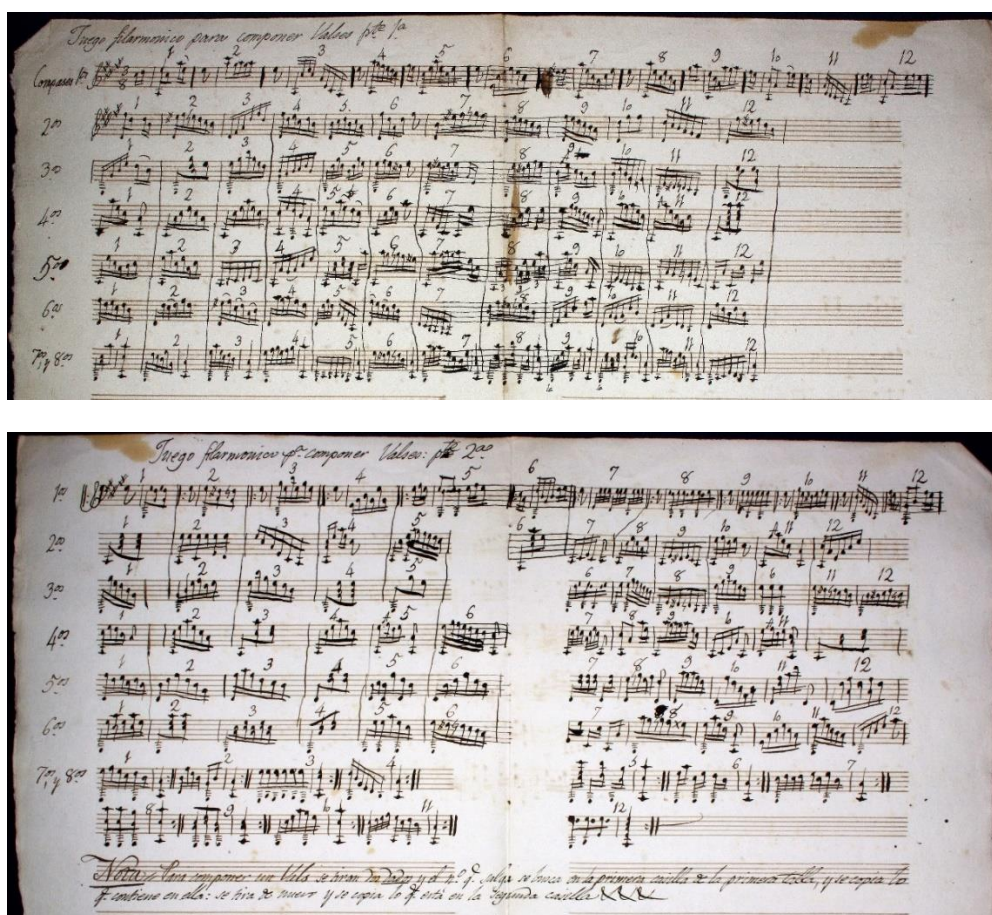 Juego filarmonico para componer Valses pte 1a
Compases 1os 1 2 3 4 5 6 7 8 9 10 11 12
3
8
2os 1 2 3 4 5 6 7 8 9 10 11 12
3os 1 2 3 4 5 6 7 8 9 10 11 12
4os 1 2 3 4 5 6 7 8 9 10 11 12
5os 1 2 3 4 5 6 7 8 9 10 11 12
6os 1 2 3 4 5 6 7 8 9 10 11 12
7os y 8os 1 2 3 4 5 6 7 8 9 10 11 12
Juego filarmonico pa. componer Valses: pte 2a
1os 1 2 3 4 5 6 7 8 9 10 11 12
2os 1 2 3 4 5 6 7 8 9 10 11 12
3os 1 2 3 4 5 6 7 8 9 10 11 12
4os 1 2 3 4 5 6 7 8 9 10 11 12
5os 1 2 3 4 5 6 7 8 9 10 11 12
6os 1 2 3 4 5 6 7 8 9 10 11 12
7os y 8os 1 2 3 4 5 6 7
8 9 10 11 12
Nota: Para componer un Vals se tiran los dados y el no. q. salga se busca en la primera casilla de la primera tabla, y se copia lo
q. contiene en ella: se tira de nuevo y se copia lo q. está en la segunda casilla